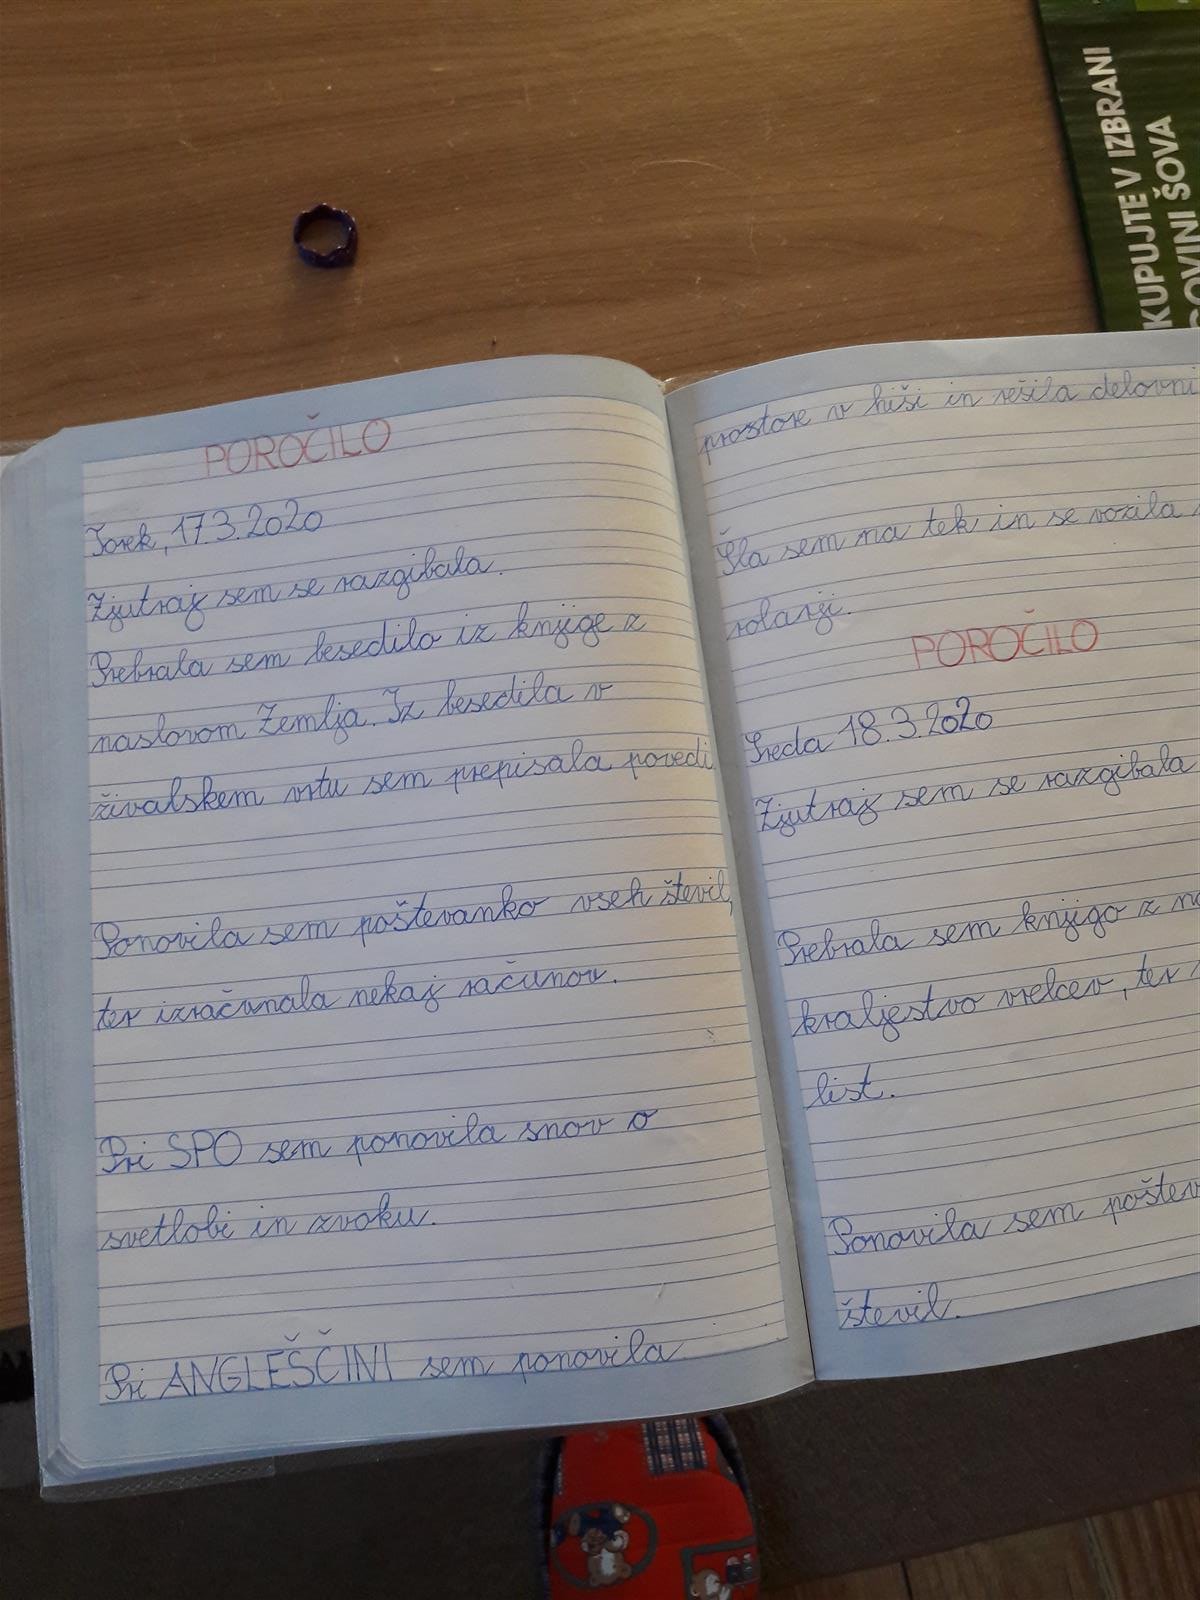 POROČILO
Torek, 17.3.2020
Zjutraj sem se razgibala.
Prebrala sem besedilo iz knjige z
naslovom Zemlja. Iz besedila v
živalskem vrtu sem prepisala povedi
Ponovila sem poštevanko vseh števil,
ter izračunala nekaj računov.
Pri SPO sem ponovila snov o
svetlobi in zvoku.
Pri ANGLEŠČINI sem ponovila
prostore v hiši in rešila delovni
Šla sem na tek in se vozila
rolarji.
POROČILO
Sreda 18.3.2020
Zjutraj sem se razgibala
Prebrala sem knjigo z na
kraljestvo vrelcev, ter
list.
Ponovila sem pošte
števil.
KUPUJTE V IZBRANI
GOVINI ŠOVA